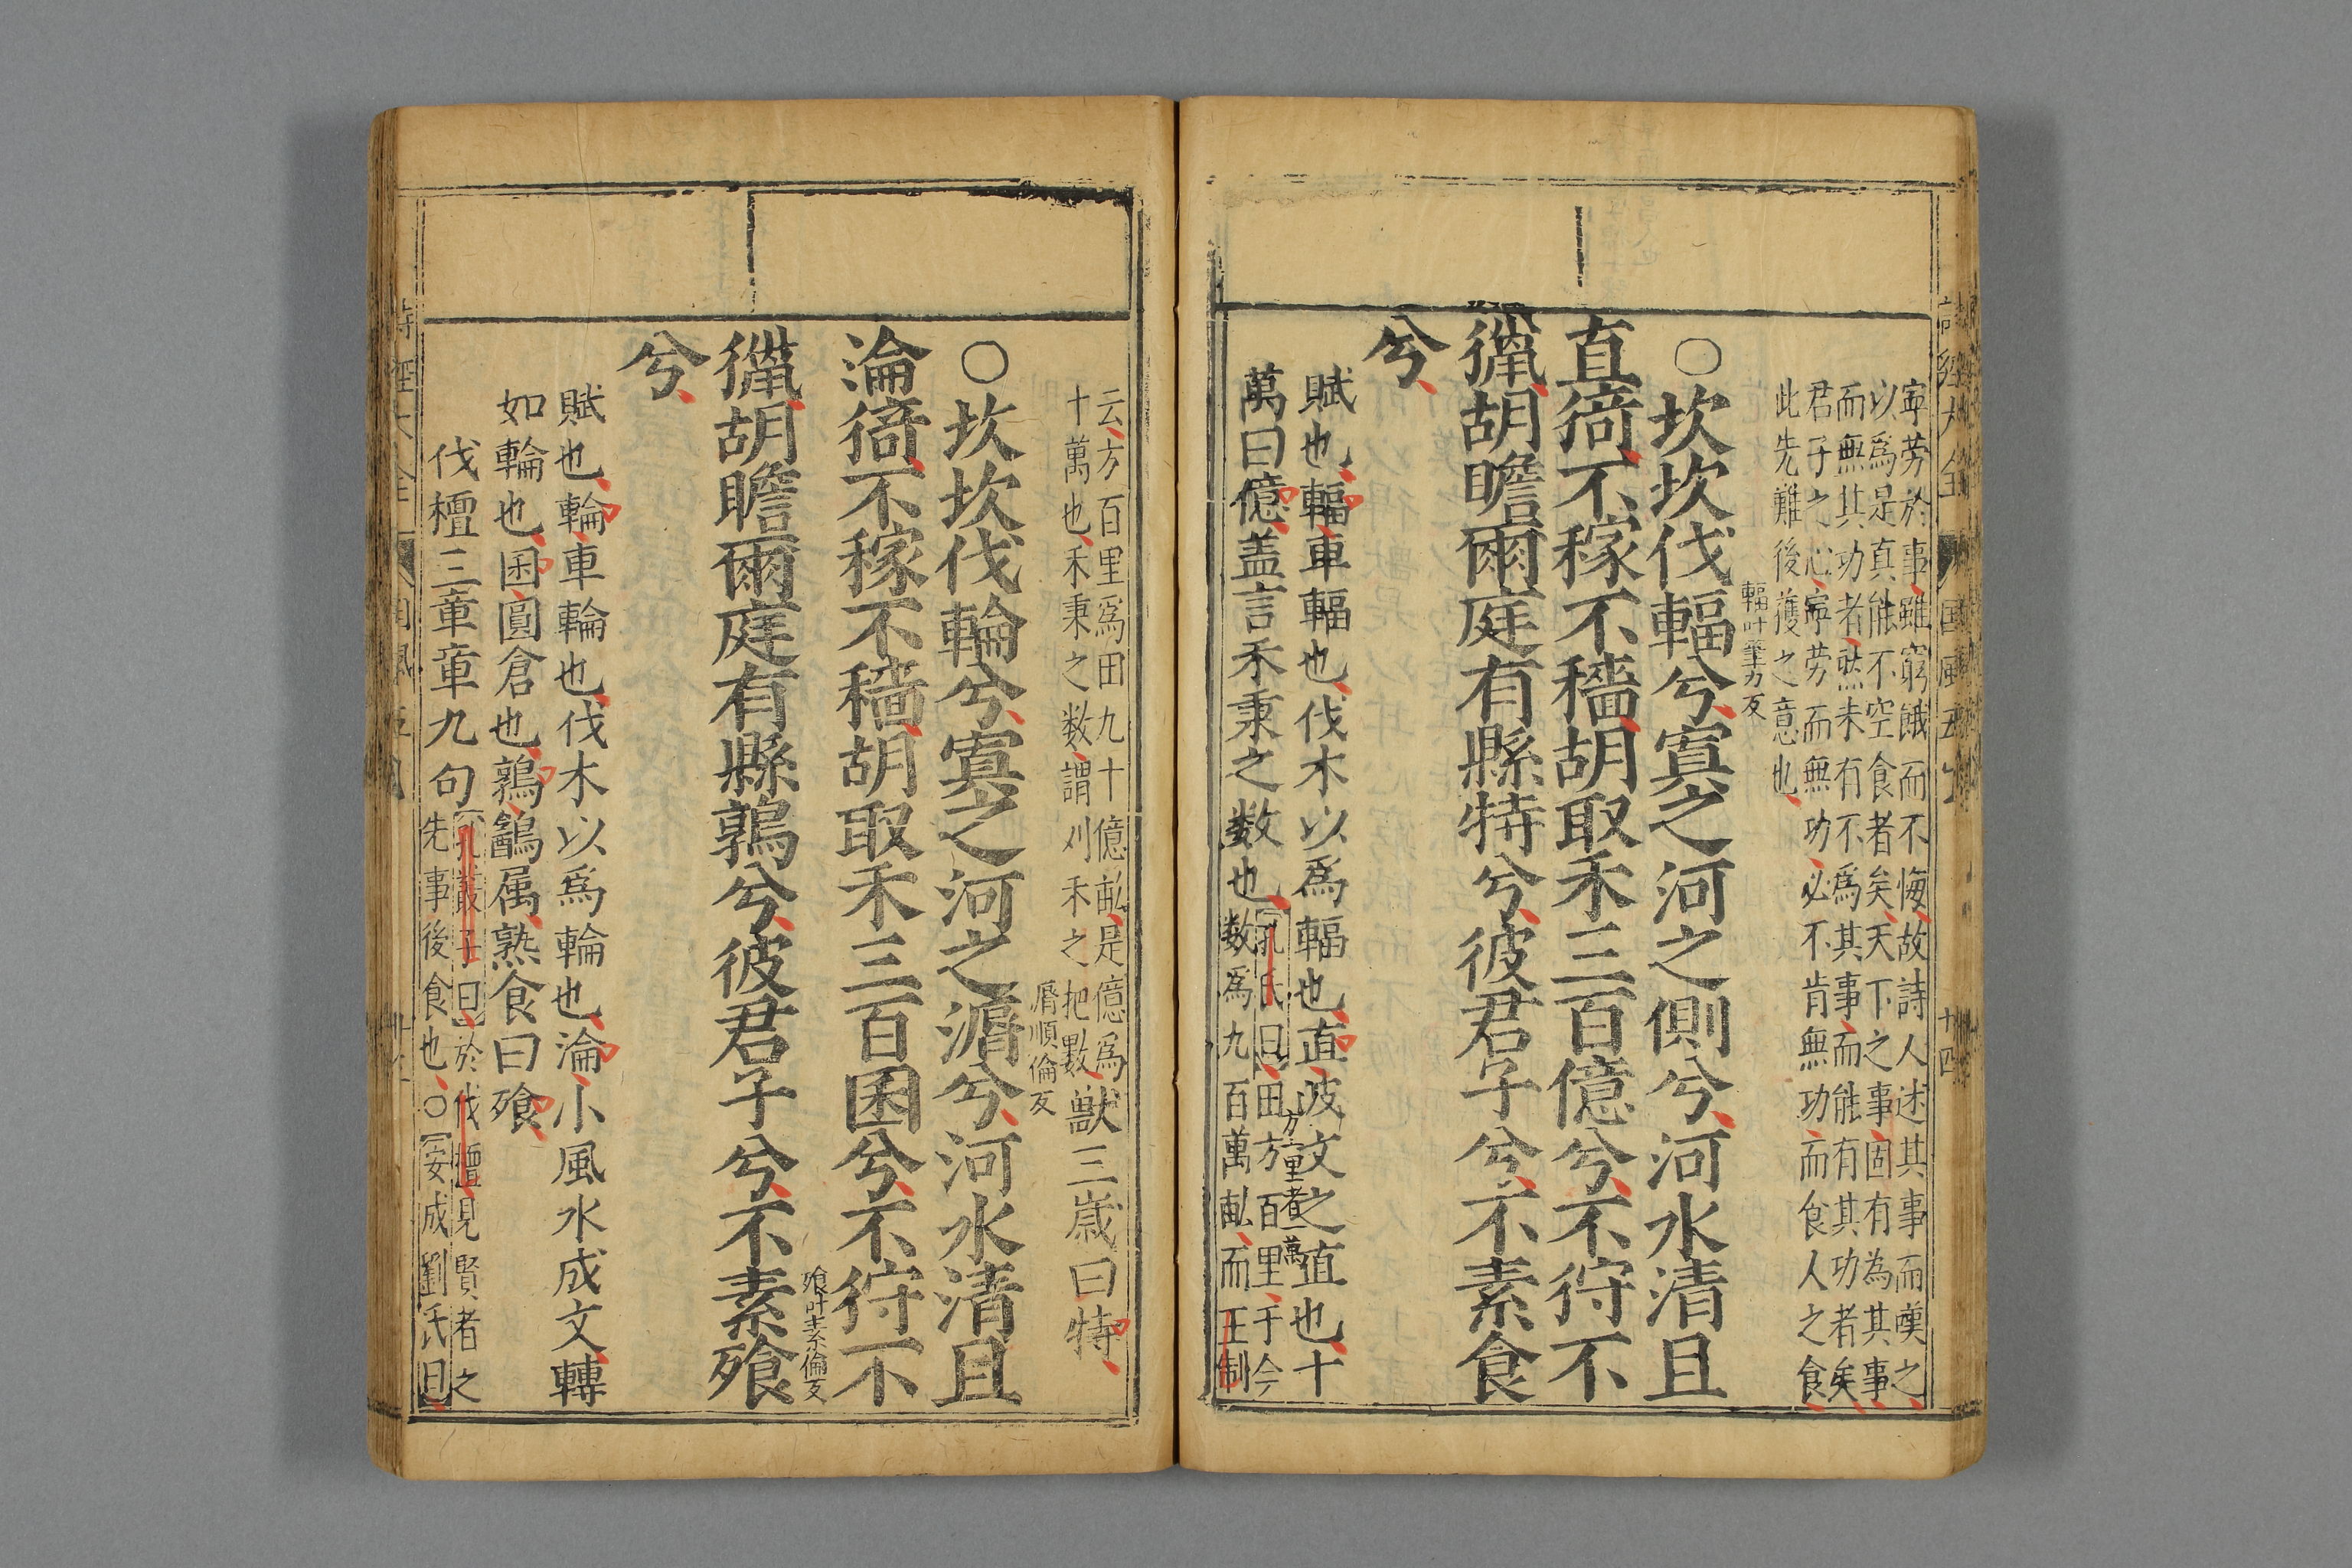 寧劳於事雖窮餓而不悔故詩人述其事而嘆之
以爲是真能不空食者矣天下之事固有為其事
而無其功者然未有不爲其事而能有其功者矣
君子之心寧劳而無功必不肯無功而食人之食
此先難後獲之意也
輻叶筆力反
○坎坎伐輻兮寘之河之側兮河水清且
直猗不稼不穡胡取禾三百億兮不狩不
獵胡瞻爾庭有縣特兮彼君子兮不素食
兮
賦也輻車輻也伐木以爲輻也直波文之直也十
萬曰億蓋言禾秉之数也
孔氏曰田方百里于今
方里者一萬
数爲九百萬畝而王制
云方百里爲田九十億畝是億爲
十萬也禾秉之数謂刈禾之把數
獸三歲曰特
漘順倫反
○坎坎伐輪兮寘之河之漘兮河水清且
淪猗不稼不穡胡取禾三百囷兮不狩不
飧叶素倫反
獵胡瞻爾庭有縣鶉兮彼君子兮不素飧
兮
賦也輪車輪也伐木以爲輪也淪小風水成文轉
如輪也囷圓倉也鶉鷂属熟食曰飧
伐檀三章章九句
孔叢子曰於伐檀見賢者之
先事後食也○安成劉氏曰
詩經大全
國風五
十四